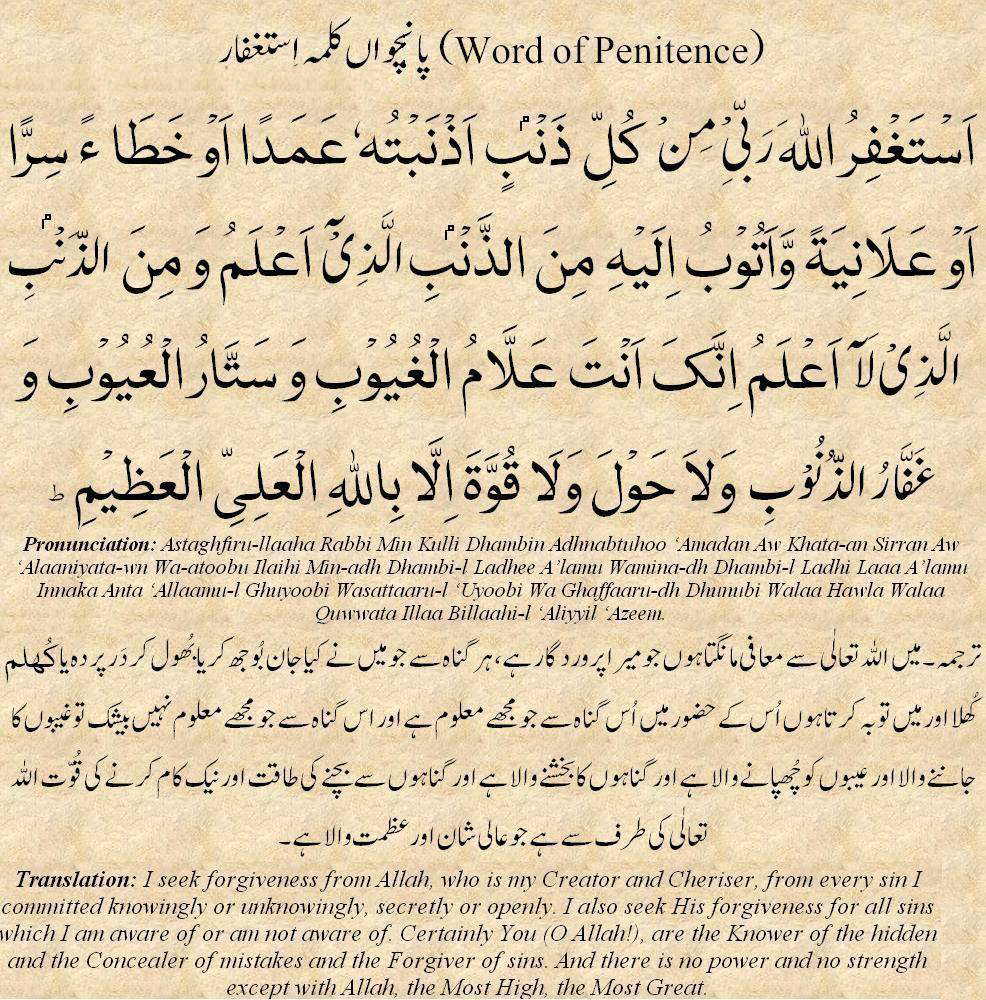 پانچواں کلمہ اِستغفار (Word of Penitence)
اَسْتَغْفِرُ اللهَ رَبِّىْ مِنْ كُلِّ ذَنْۢبٍ اَذْنَبْتُهٗ عَمَدًا اَوْ خَطَا ءً سِرًّا
اَوْ عَلَانِيَةً وَّاَتُوْبُ اِلَيْهِ مِنَ الذَّنْۢبِ الَّذِىْٓ اَعْلَمُ وَ مِنَ الذَّنْۢبِ
الَّذِىْ لَآ اَعْلَمُ اِنَّکَ اَنْتَ عَلَّامُ الْغُيُوْبِ وَ سَتَّارُ الْعُيُوْبِ وَ
غَفَّارُ الذُّنُوْبِ وَلاَ حَوْلَ وَلَا قُوَّةَ اِلَّا بِاللهِ الْعَلِىِّ الْعَظِيْمِ ؕ
Pronunciation: Astaghfiru-llaaha Rabbi Min Kulli Dhambin Adhnabtuhoo ‘Amadan Aw Khata-an Sirran Aw
‘Alaaniyata-wn Wa-atoobu Ilaihi Min-adh Dhambi-l Ladhee A’lamu Wamina-dh Dhambi-l Ladhi Laaa A’lamu
Innaka Anta ‘Allaamu-l Ghuyoobi Wasattaaru-l ‘Uyoobi Wa Ghaffaaru-dh Dhunubi Walaa Hawla Walaa
Quwwata Illaa Billaahi-l ‘Aliyyil ‘Azeem.
ترجمہ۔ میں اللہ تعالٰی سے معافی مانگتا ہوں جو میرا پروردگار ہے، ہر گناہ سے جو میں نے کیا جان بُوجھ کر یا بُھول کر دَر پردہ یا کُھلم
کُھلا اور میں توبہ کرتا ہوں اُس کے حضور میں اُس گناہ سے جو مجھے معلوم ہے اور اس گناہ سے جو مجھے معلوم نہیں بیشک تو غیبوں کا
جاننے والا اور عیبوں کو چُھپانے والا ہے اور گناہوں کا بخشنے والا ہے اور گناہوں سے بچنے کی طاقت اور نیک کام کرنے کی قُوّت اللہ
تعالٰی کی طرف سے ہے جو عالی شان اور عظمت والا ہے۔
Translation: I seek forgiveness from Allah, who is my Creator and Cheriser, from every sin I
committed knowingly or unknowingly, secretly or openly. I also seek His forgiveness for all sins
which I am aware of or am not aware of. Certainly You (O Allah!), are the Knower of the hidden
and the Concealer of mistakes and the Forgiver of sins. And there is no power and no strength
except with Allah, the Most High, the Most Great.